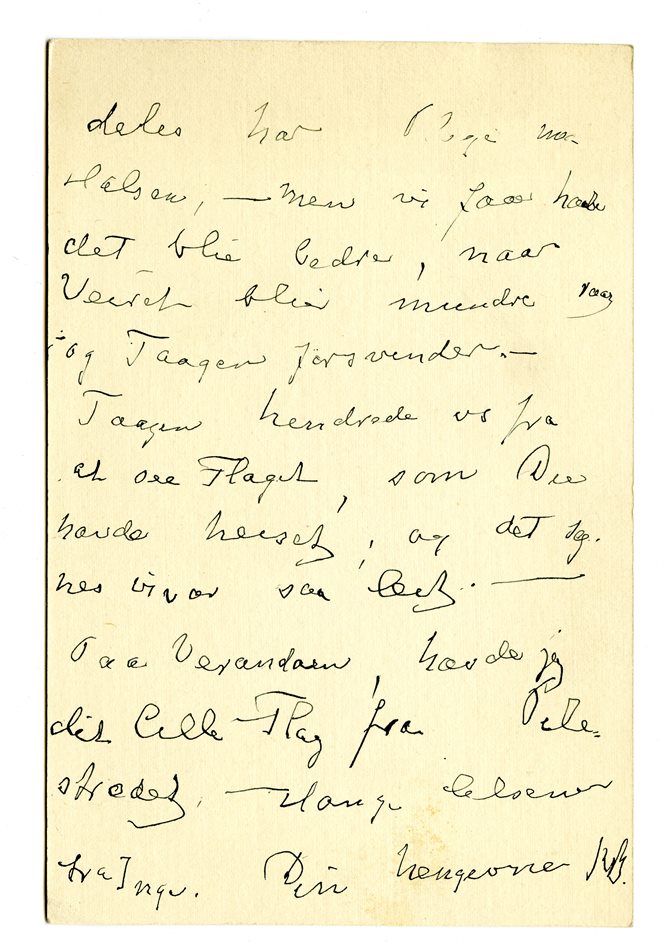 deles har Plage m
Halsen, — men vi faar haabe
det blir bedre, naar
Veiret blir mindre raag
og Taagen forsvinder. —
Taagen hendrede os fra
at see Flaget, som Du
havde heiset, og det sy-
nes vi var saa leit. —
Paa Verandaen, havde jeg
det lille Flag fra Pile=
strædet, — Mange Hilsener
fra Inga. Din hengivne